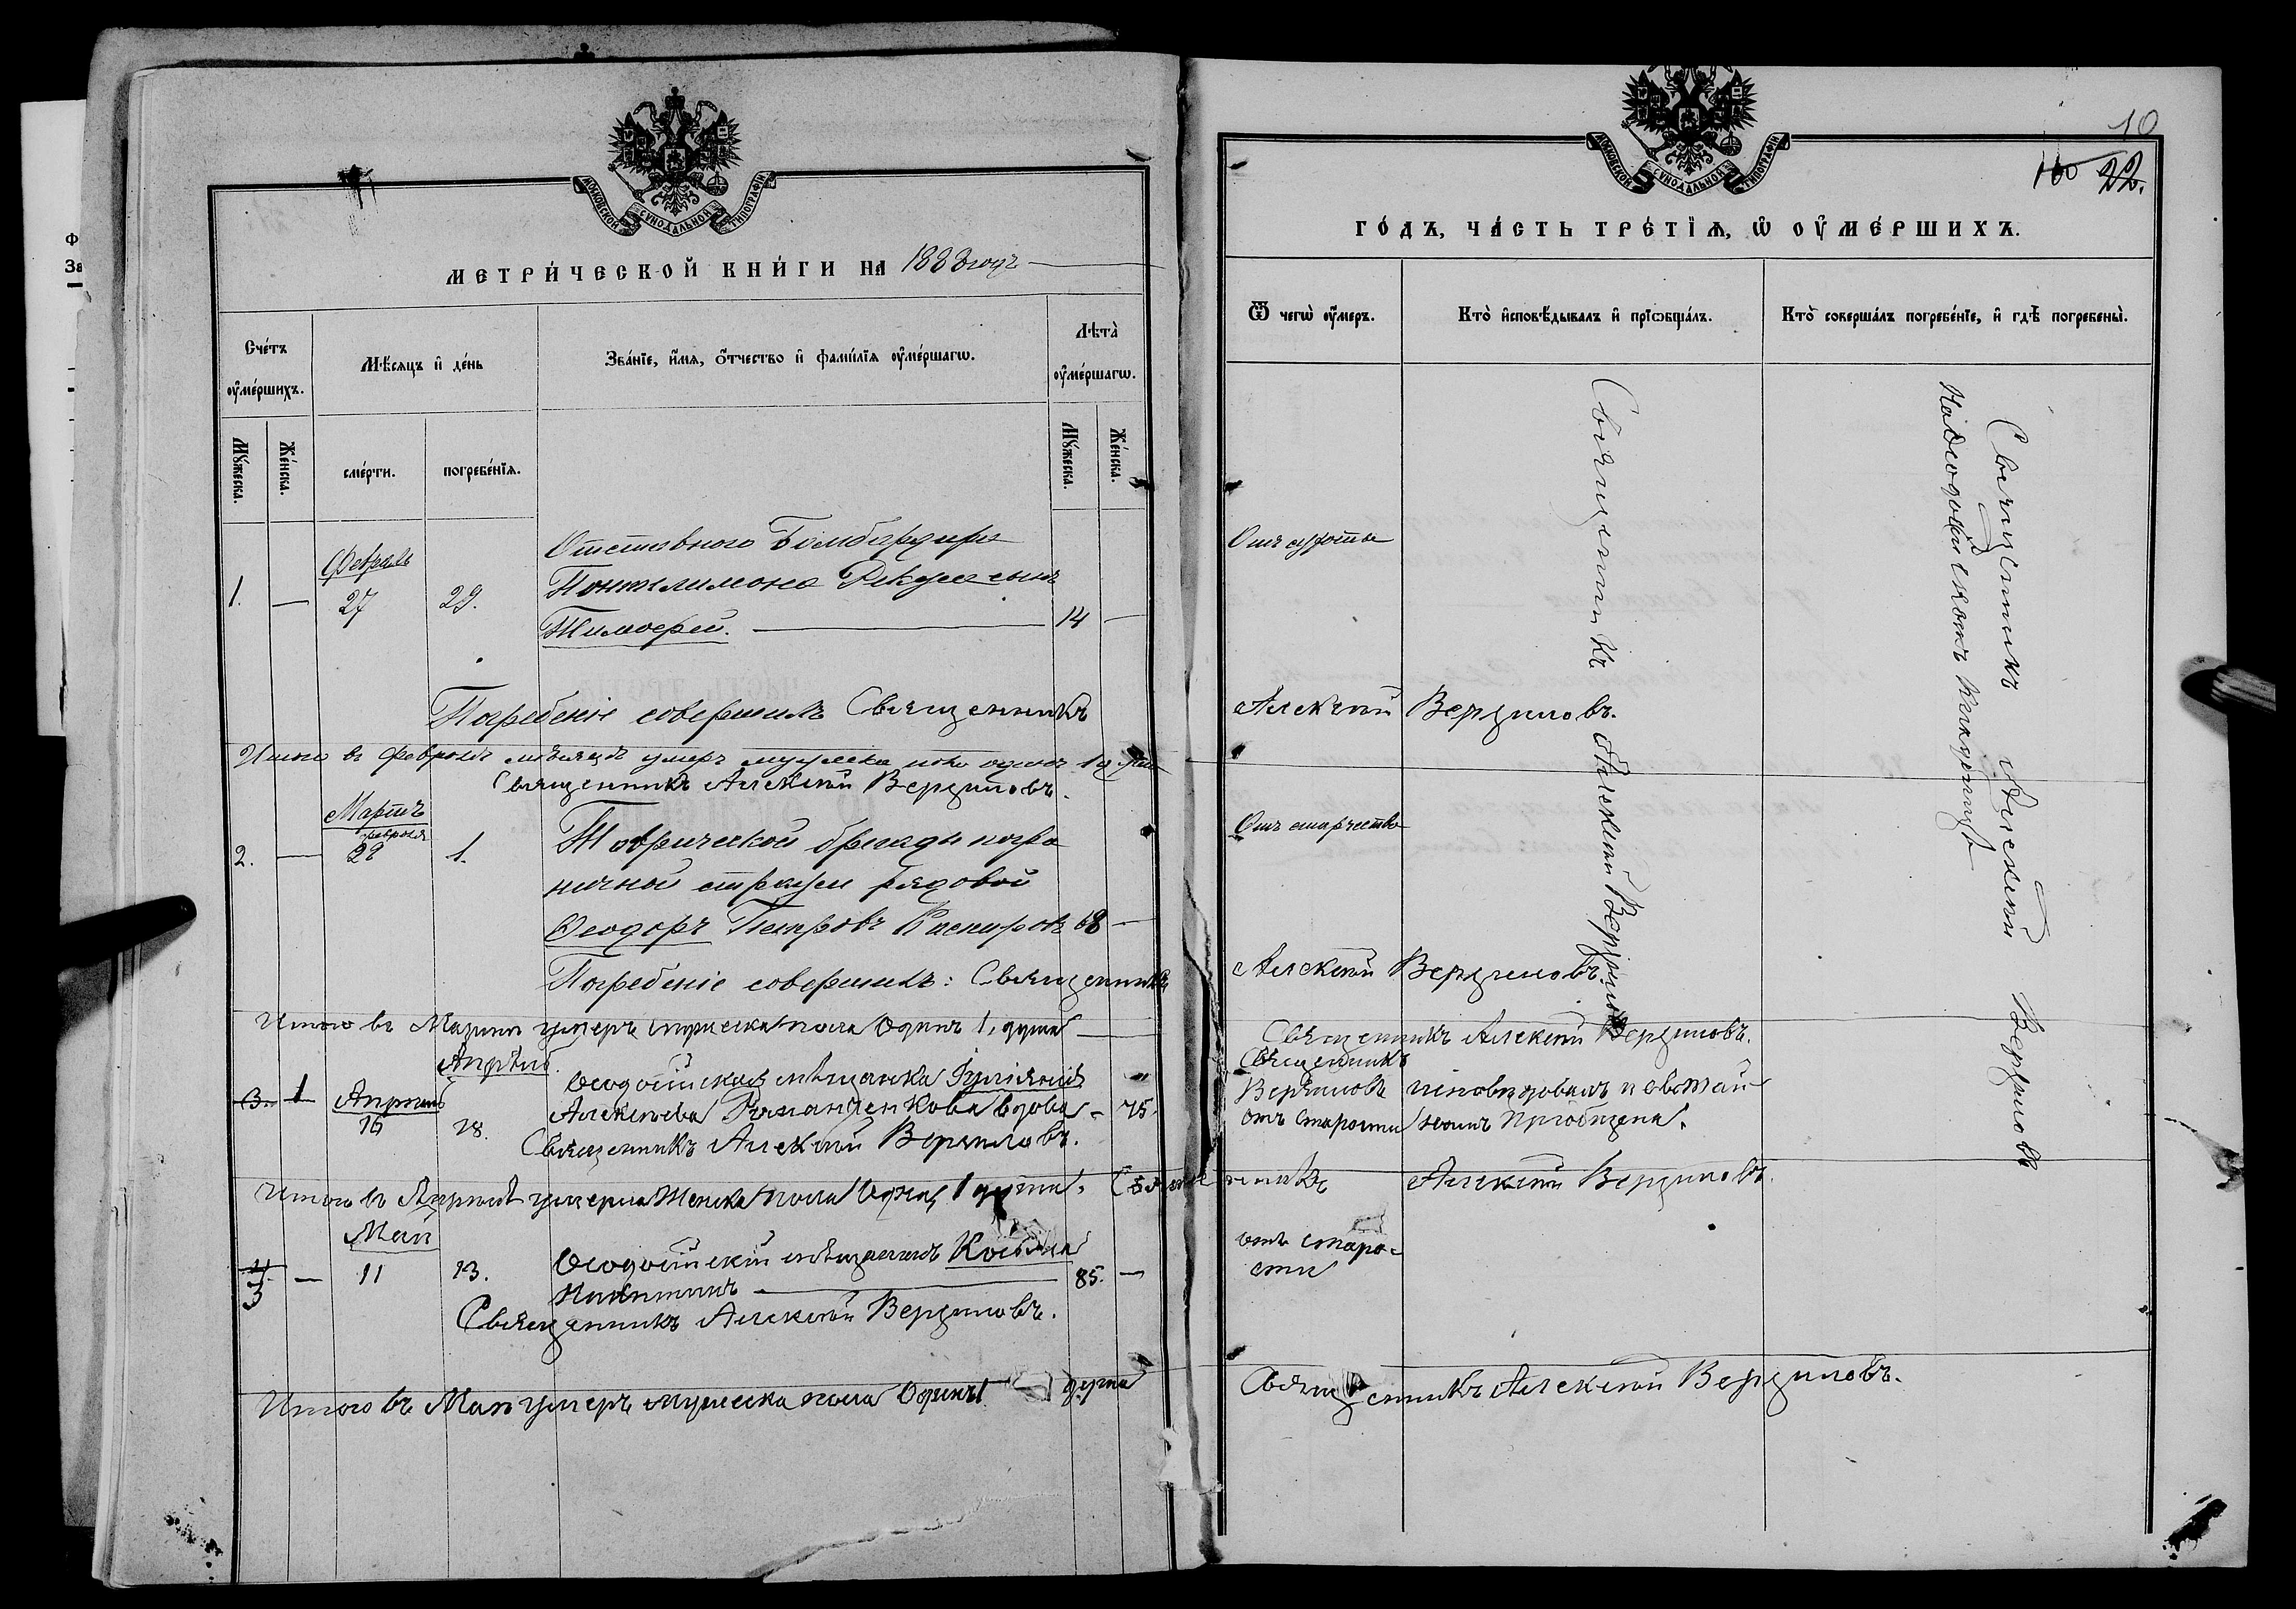 МОСКОВСКОЙ СУНОДАЛЬНОЙ ТИПОГРАФІИ
МЕТРИ́ЧЕСКОЙ КНИ́ГИ НА 1888 годъ
Сче́тъ оу҆ме́ршихъ.
Мѣ́сяцъ и҆ де́нь
Зва́нїе, и҆́мя, ѻ҆́тчество и҆ фами́лїя оу҆ме́ршагѡ.
Лѣ́та оу҆ме́ршагѡ.
Мꙋ́жеска.
Же́нска.
сме́рти.
погребе́нїя.
Мꙋ́жеска.
Же́нска.
Февраль
1. — 27 29.
Отставного Бомбардира
сынъ
Тимофей. — 14 —
Погребеніе совершилъ Священникъ
Итого въ Февралѣ мѣсяцѣ умеръ мужеска пола одинъ
Священникъ Алексѣй Вердиловъ.
Мартъ
февраля
2. — 29 1.
Таврической бригады погра
ничной стражи рядовой
Ѳеодоръ Петровъ 68 —
Погребеніе совершилъ: Священникъ
Итого въ Мартѣ умеръ мужеска пола Одинъ 1, душа —
Апрѣль.
3. 1 Апрѣль
16 18.
Ѳеодосійская мѣщанка
Алексѣева вдова - 75.
Священникъ Алексѣй Вердиловъ.
Итого въ Апрѣлѣ умерла Женска пола Одна, 1 душа.
Май
4. 3 — 11 13.
Ѳеодосійскій мѣщанинъ Косьма
Никитинъ — 85. —
Священникъ Алексѣй Вердиловъ.
Итого въ Маѣ умеръ мужеска пола Одинъ 1 душа
МОСКОВСКОЙ СУНОДАЛЬНОЙ ТИПОГРАФІИ
10
22.
ГО́ДЪ, ЧА́СТЬ ТРЕ́ТЇѦ, Ѡ҆ ОУ҆МЕ́РШИХЪ.
Ѿ чегѡ̀ оу҆́меръ.
Кто̀ и҆сповѣ́дывалъ и҆ прїѡбща́лъ.
Кто̀ соверша́лъ погребе́нїе, и҆ гдѣ̀ погребены̀.
Священникъ Алексѣй Вердиловъ
Священникъ Алексѣй Вердиловъ
На Ѳеодосійскомъ кладбищѣ
Отъ
Алексѣй Вердиловъ.
Отъ старчества
Алексѣй Вердиловъ.
Священникъ Алексѣй Вердиловъ.
Священникъ
Вердиловъ исповѣдовалъ и святай
отъ старости пріобщена.
Священникъ Алексѣй Вердиловъ.
отъ старо-
сти
Священникъ Алексѣй Вердиловъ.